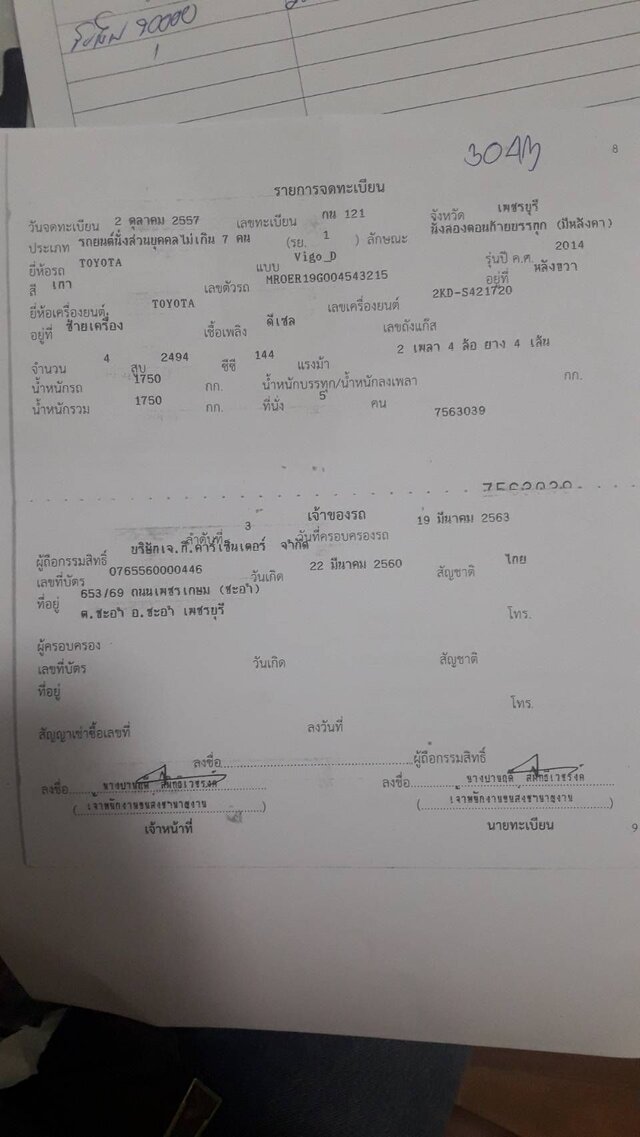 90000
1
3043
8
รายการจดทะเบียน
วันจดทะเบียน 2 ตุลาคม 2557 เลขทะเบียน กน 121 จังหวัด เพชรบุรี
ประเภท รถยนต์นั่งส่วนบุคคลไม่เกิน 7 คน (รย. 1 ) ลักษณะ นั่งสองตอนท้ายบรรทุก (มีหลังคา)
ยี่ห้อรถ TOYOTA แบบ Vigo_D รุ่นปี ค.ศ. 2014
สี เทา เลขตัวรถ MROER19G004543215 อยู่ที่ หลังขวา
ยี่ห้อเครื่องยนต์ TOYOTA เลขเครื่องยนต์ 2KD-S421720
อยู่ที่ ซ้ายเครื่อง เชื้อเพลิง ดีเซล เลขถังแก๊ส
จำนวน 4 สูบ 2494 ซีซี 144 แรงม้า 2 เพลา 4 ล้อ ยาง 4 เส้น
น้ำหนักรถ 1750 กก. น้ำหนักบรรทุก/น้ำหนักลงเพลา กก.
น้ำหนักรวม 1750 กก. ที่นั่ง 5 คน 7563039
เจ้าของรถ
ลำดับที่ 3 วันที่ครอบครองรถ 19 มีนาคม 2563
ผู้ถือกรรมสิทธิ์ บริษัทเจ.ที.คาร์เซ็นเตอร์ จำกัด
เลขที่บัตร 0765560000446 วันเกิด 22 มีนาคม 2560 สัญชาติ ไทย
ที่อยู่ 653/69 ถนนเพชรเกษม (ชะอำ)
ต.ชะอำ อ.ชะอำ เพชรบุรี โทร.
ผู้ครอบครอง
เลขที่บัตร วันเกิด สัญชาติ
ที่อยู่
โทร.
สัญญาเช่าซื้อเลขที่ ลงวันที่
ลงชื่อ ผู้ถือกรรมสิทธิ์
ลงชื่อ ลงชื่อ
(เจ้าพนักงานขนส่งชำนาญงาน) (เจ้าพนักงานขนส่งชำนาญงาน)
เจ้าหน้าที่ นายทะเบียน
9